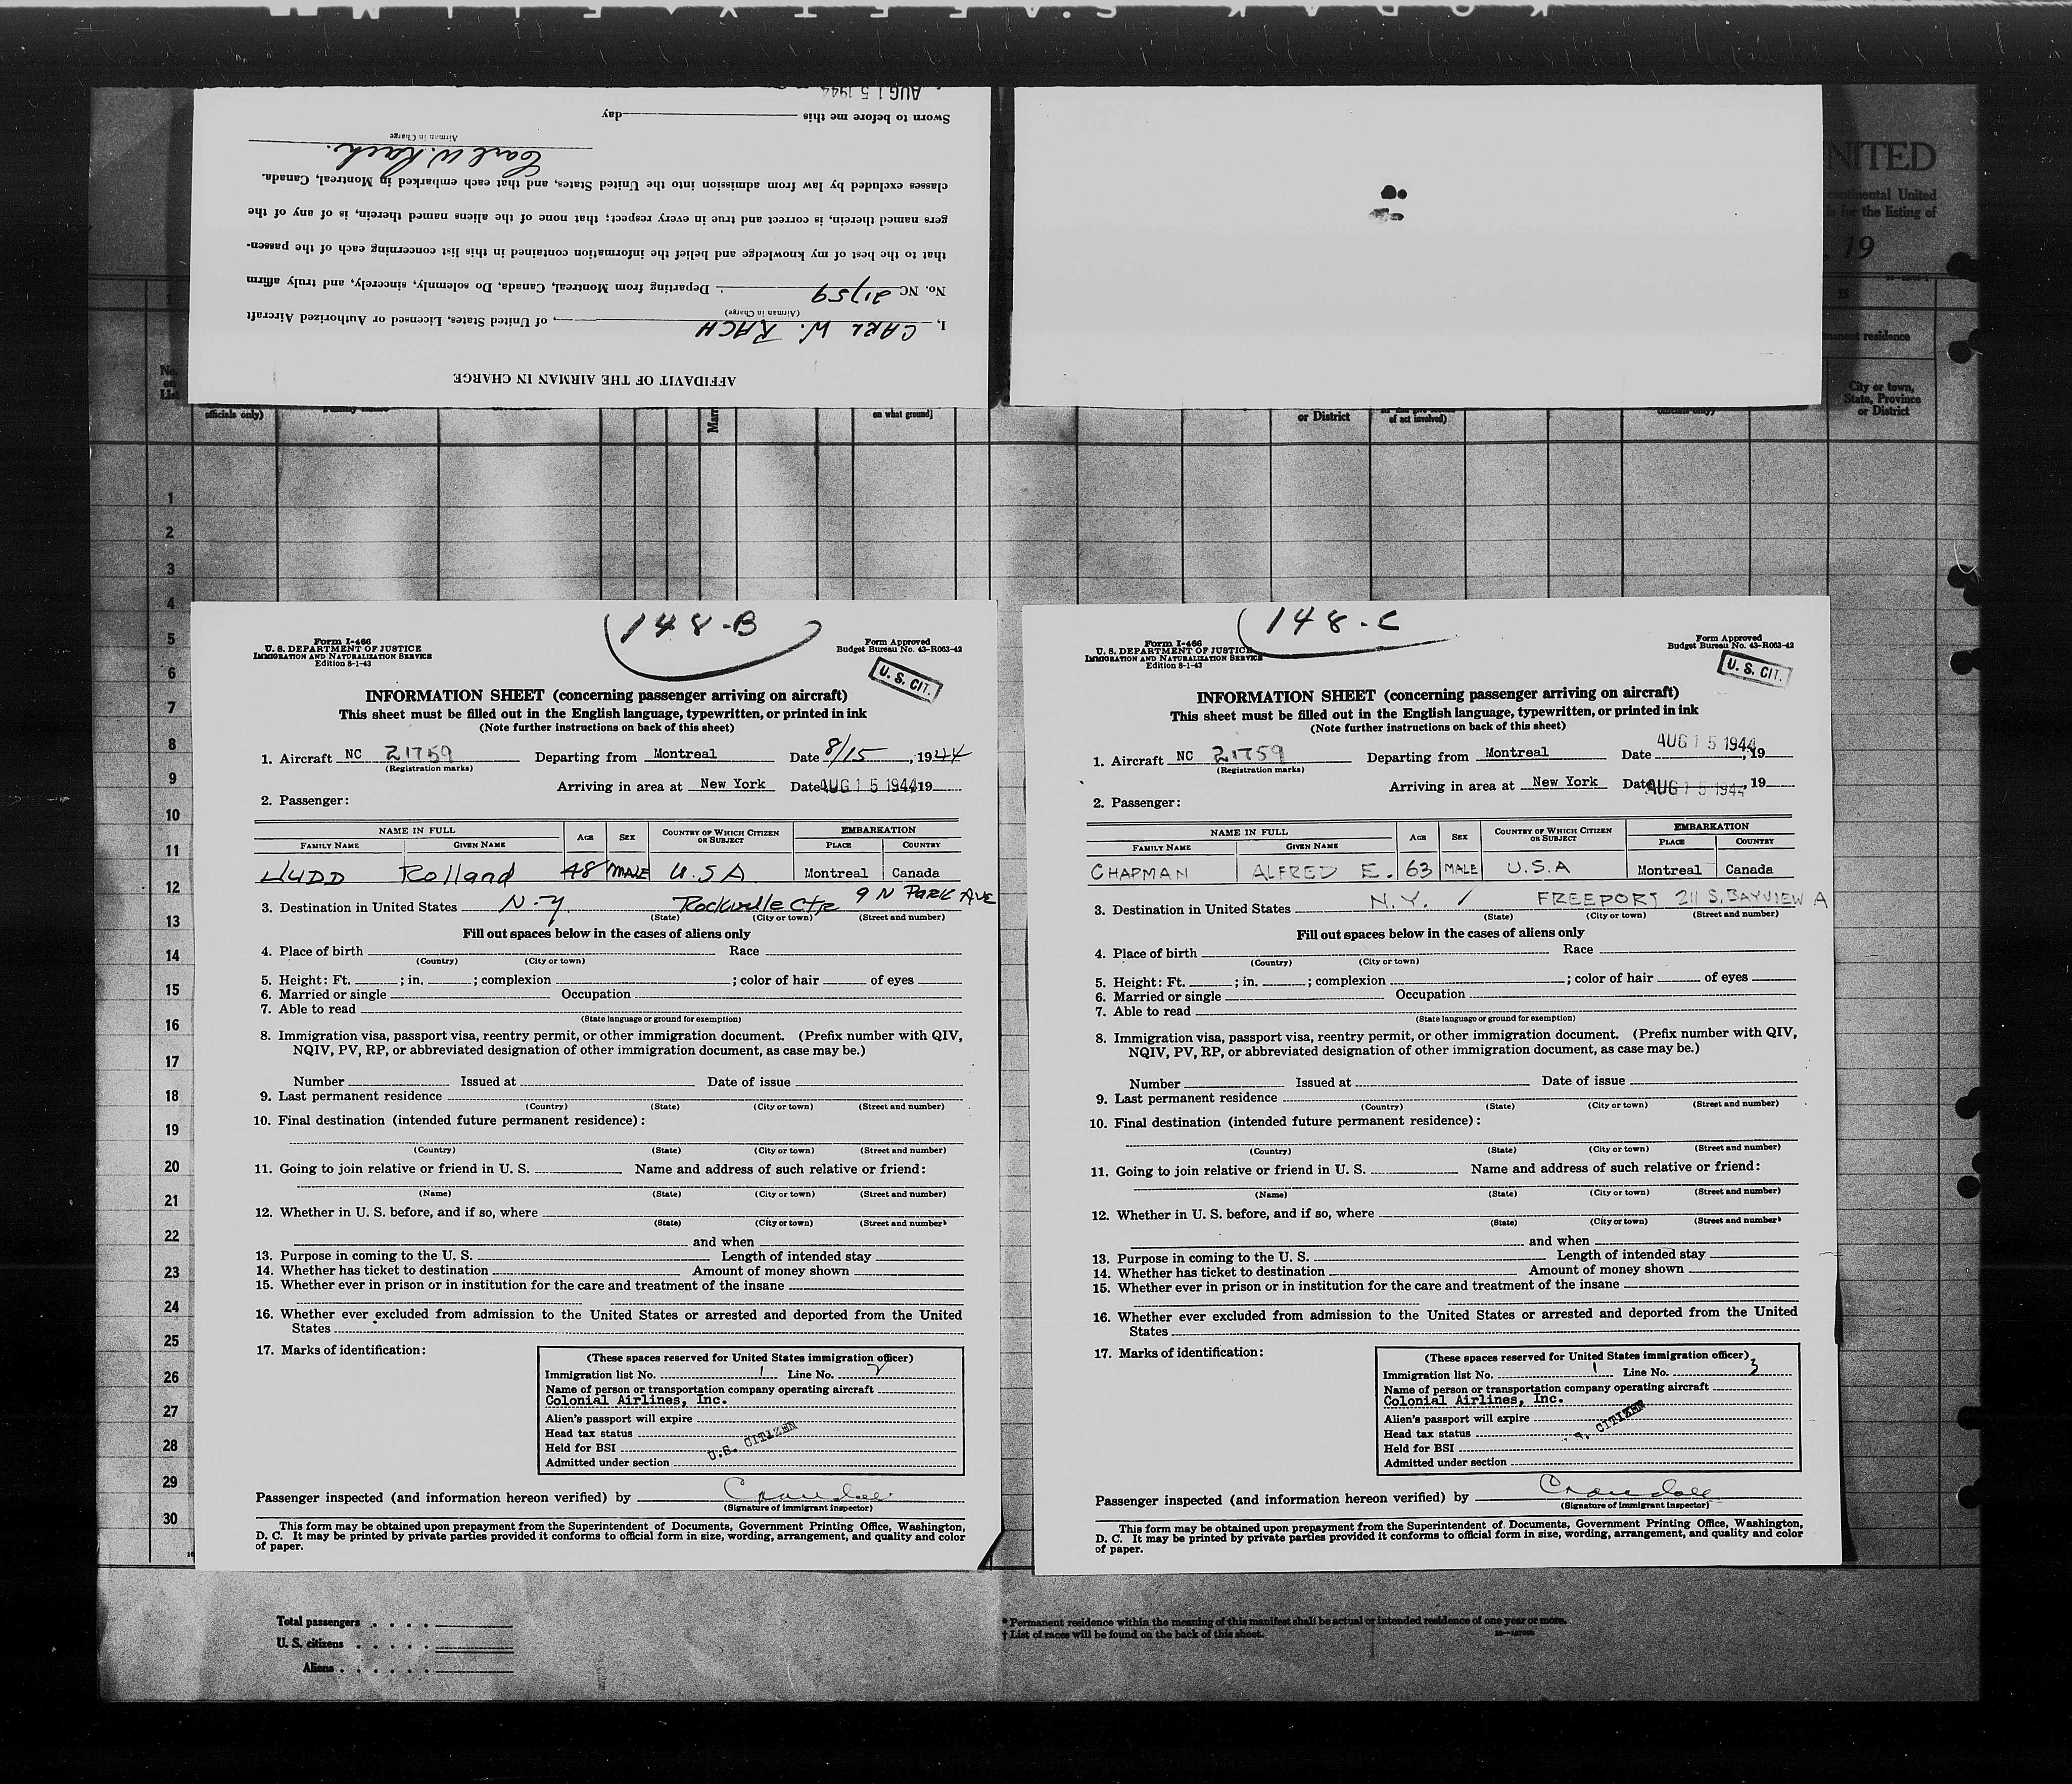 AFFIDAVIT OF THE AIRMAN IN CHARGE
I, CARL W. RACH, of United States, Licensed or Authorized Aircraft
(Airman in Charge)
No. NC 21759 Departing from Montreal, Canada, Do solemnly, sincerely, and truly affirm
that to the best of my knowledge and belief the information contained in this list concerning each of the passen-
gers named therein, is correct and true in every respect; that none of the aliens named therein, is of any of the
classes excluded by law from admission into the United States, and that each embarked in Montreal, Canada.
Carl W. Rach.
Airman in Charge
Sworn to before me this day
AUG 15 1944
NITED
continental United
is for the listing of
, 19
15
manent residence
No. on List
officials only)
Family name
on what ground]
or District
of act involved)
officials only)
City or town,
State, Province
or District
1
2
3
4
5
6
7
8
9
10
11
12
13
14
15
16
17
18
19
20
21
22
23
24
25
26
27
28
29
30
148-B
Form I-466
U. S. DEPARTMENT OF JUSTICE
IMMIGRATION AND NATURALIZATION SERVICE
Edition 8-1-43
Form Approved
Budget Bureau No. 43-R063-42
U. S. CIT.
INFORMATION SHEET (concerning passenger arriving on aircraft)
This sheet must be filled out in the English language, typewritten, or printed in ink
(Note further instructions on back of this sheet)
1. Aircraft NC 21759 Departing from Montreal Date 8/15, 1944
(Registration marks)
Arriving in area at New York Date AUG 15 1944 19
2. Passenger:
NAME IN FULL AGE SEX COUNTRY OF WHICH CITIZEN OR SUBJECT EMBARKATION
FAMILY NAME GIVEN NAME PLACE COUNTRY
JUDD Rolland 48 MALE U.S A Montreal Canada
3. Destination in United States N-Y Rockville Ctr 9 N PARK AVE
(State) (City or town) (Street and number)
Fill out spaces below in the cases of aliens only
4. Place of birth Race
(Country) (City or town)
5. Height: Ft. ; in. ; complexion ; color of hair of eyes
6. Married or single Occupation
7. Able to read
(State language or ground for exemption)
8. Immigration visa, passport visa, reentry permit, or other immigration document. (Prefix number with QIV,
NQIV, PV, RP, or abbreviated designation of other immigration document, as case may be.)
Number Issued at Date of issue
9. Last permanent residence
(Country) (State) (City or town) (Street and number)
10. Final destination (intended future permanent residence):
(Country) (State) (City or town) (Street and number)
11. Going to join relative or friend in U. S. Name and address of such relative or friend:
(Name) (State) (City or town) (Street and number)
12. Whether in U. S. before, and if so, where
(State) (City or town) (Street and number)
and when
13. Purpose in coming to the U. S. Length of intended stay
14. Whether has ticket to destination Amount of money shown
15. Whether ever in prison or in institution for the care and treatment of the insane
16. Whether ever excluded from admission to the United States or arrested and deported from the United
States
17. Marks of identification:
(These spaces reserved for United States immigration officer)
Immigration list No. 1 Line No. 2
Name of person or transportation company operating aircraft
Colonial Airlines, Inc.
Alien's passport will expire
Head tax status
Held for BSI
U.S. CITIZEN
Admitted under section
Passenger inspected (and information hereon verified) by Crandall
(Signature of immigrant inspector)
This form may be obtained upon prepayment from the Superintendent of Documents, Government Printing Office, Washington,
D. C. It may be printed by private parties provided it conforms to official form in size, wording, arrangement, and quality and color
of paper.
148-C
Form I-466
U. S. DEPARTMENT OF JUSTICE
IMMIGRATION AND NATURALIZATION SERVICE
Edition 8-1-43
Form Approved
Budget Bureau No. 43-R063-42
U. S. CIT.
INFORMATION SHEET (concerning passenger arriving on aircraft)
This sheet must be filled out in the English language, typewritten, or printed in ink
(Note further instructions on back of this sheet)
1. Aircraft NC 21759 Departing from Montreal Date AUG 15 1944, 19
(Registration marks)
Arriving in area at New York Date AUG 15 1944, 19
2. Passenger:
NAME IN FULL AGE SEX COUNTRY OF WHICH CITIZEN OR SUBJECT EMBARKATION
FAMILY NAME GIVEN NAME PLACE COUNTRY
CHAPMAN ALFRED E. 63 MALE U.S.A Montreal Canada
3. Destination in United States N.Y. / FREEPORT 211 S. BAYVIEW A
(State) (City or town) (Street and number)
Fill out spaces below in the cases of aliens only
4. Place of birth Race
(Country) (City or town)
5. Height: Ft. ; in. ; complexion ; color of hair of eyes
6. Married or single Occupation
7. Able to read
(State language or ground for exemption)
8. Immigration visa, passport visa, reentry permit, or other immigration document. (Prefix number with QIV,
NQIV, PV, RP, or abbreviated designation of other immigration document, as case may be.)
Number Issued at Date of issue
9. Last permanent residence
(Country) (State) (City or town) (Street and number)
10. Final destination (intended future permanent residence):
(Country) (State) (City or town) (Street and number)
11. Going to join relative or friend in U. S. Name and address of such relative or friend:
(Name) (State) (City or town) (Street and number)
12. Whether in U. S. before, and if so, where
(State) (City or town) (Street and number)
and when
13. Purpose in coming to the U. S. Length of intended stay
14. Whether has ticket to destination Amount of money shown
15. Whether ever in prison or in institution for the care and treatment of the insane
16. Whether ever excluded from admission to the United States or arrested and deported from the United
States
17. Marks of identification:
(These spaces reserved for United States immigration officer)
Immigration list No. 1 Line No. 3
Name of person or transportation company operating aircraft
Colonial Airlines, Inc.
Alien's passport will expire
CITIZEN
Head tax status
Held for BSI
Admitted under section
Passenger inspected (and information hereon verified) by Crandall
(Signature of immigrant inspector)
This form may be obtained upon prepayment from the Superintendent of Documents, Government Printing Office, Washington,
D. C. It may be printed by private parties provided it conforms to official form in size, wording, arrangement, and quality and color
of paper.
Total passengers
U. S. citizens
Aliens
* Permanent residence within the meaning of this manifest shall be actual or intended residence of one year or more.
† List of races will be found on the back of this sheet.